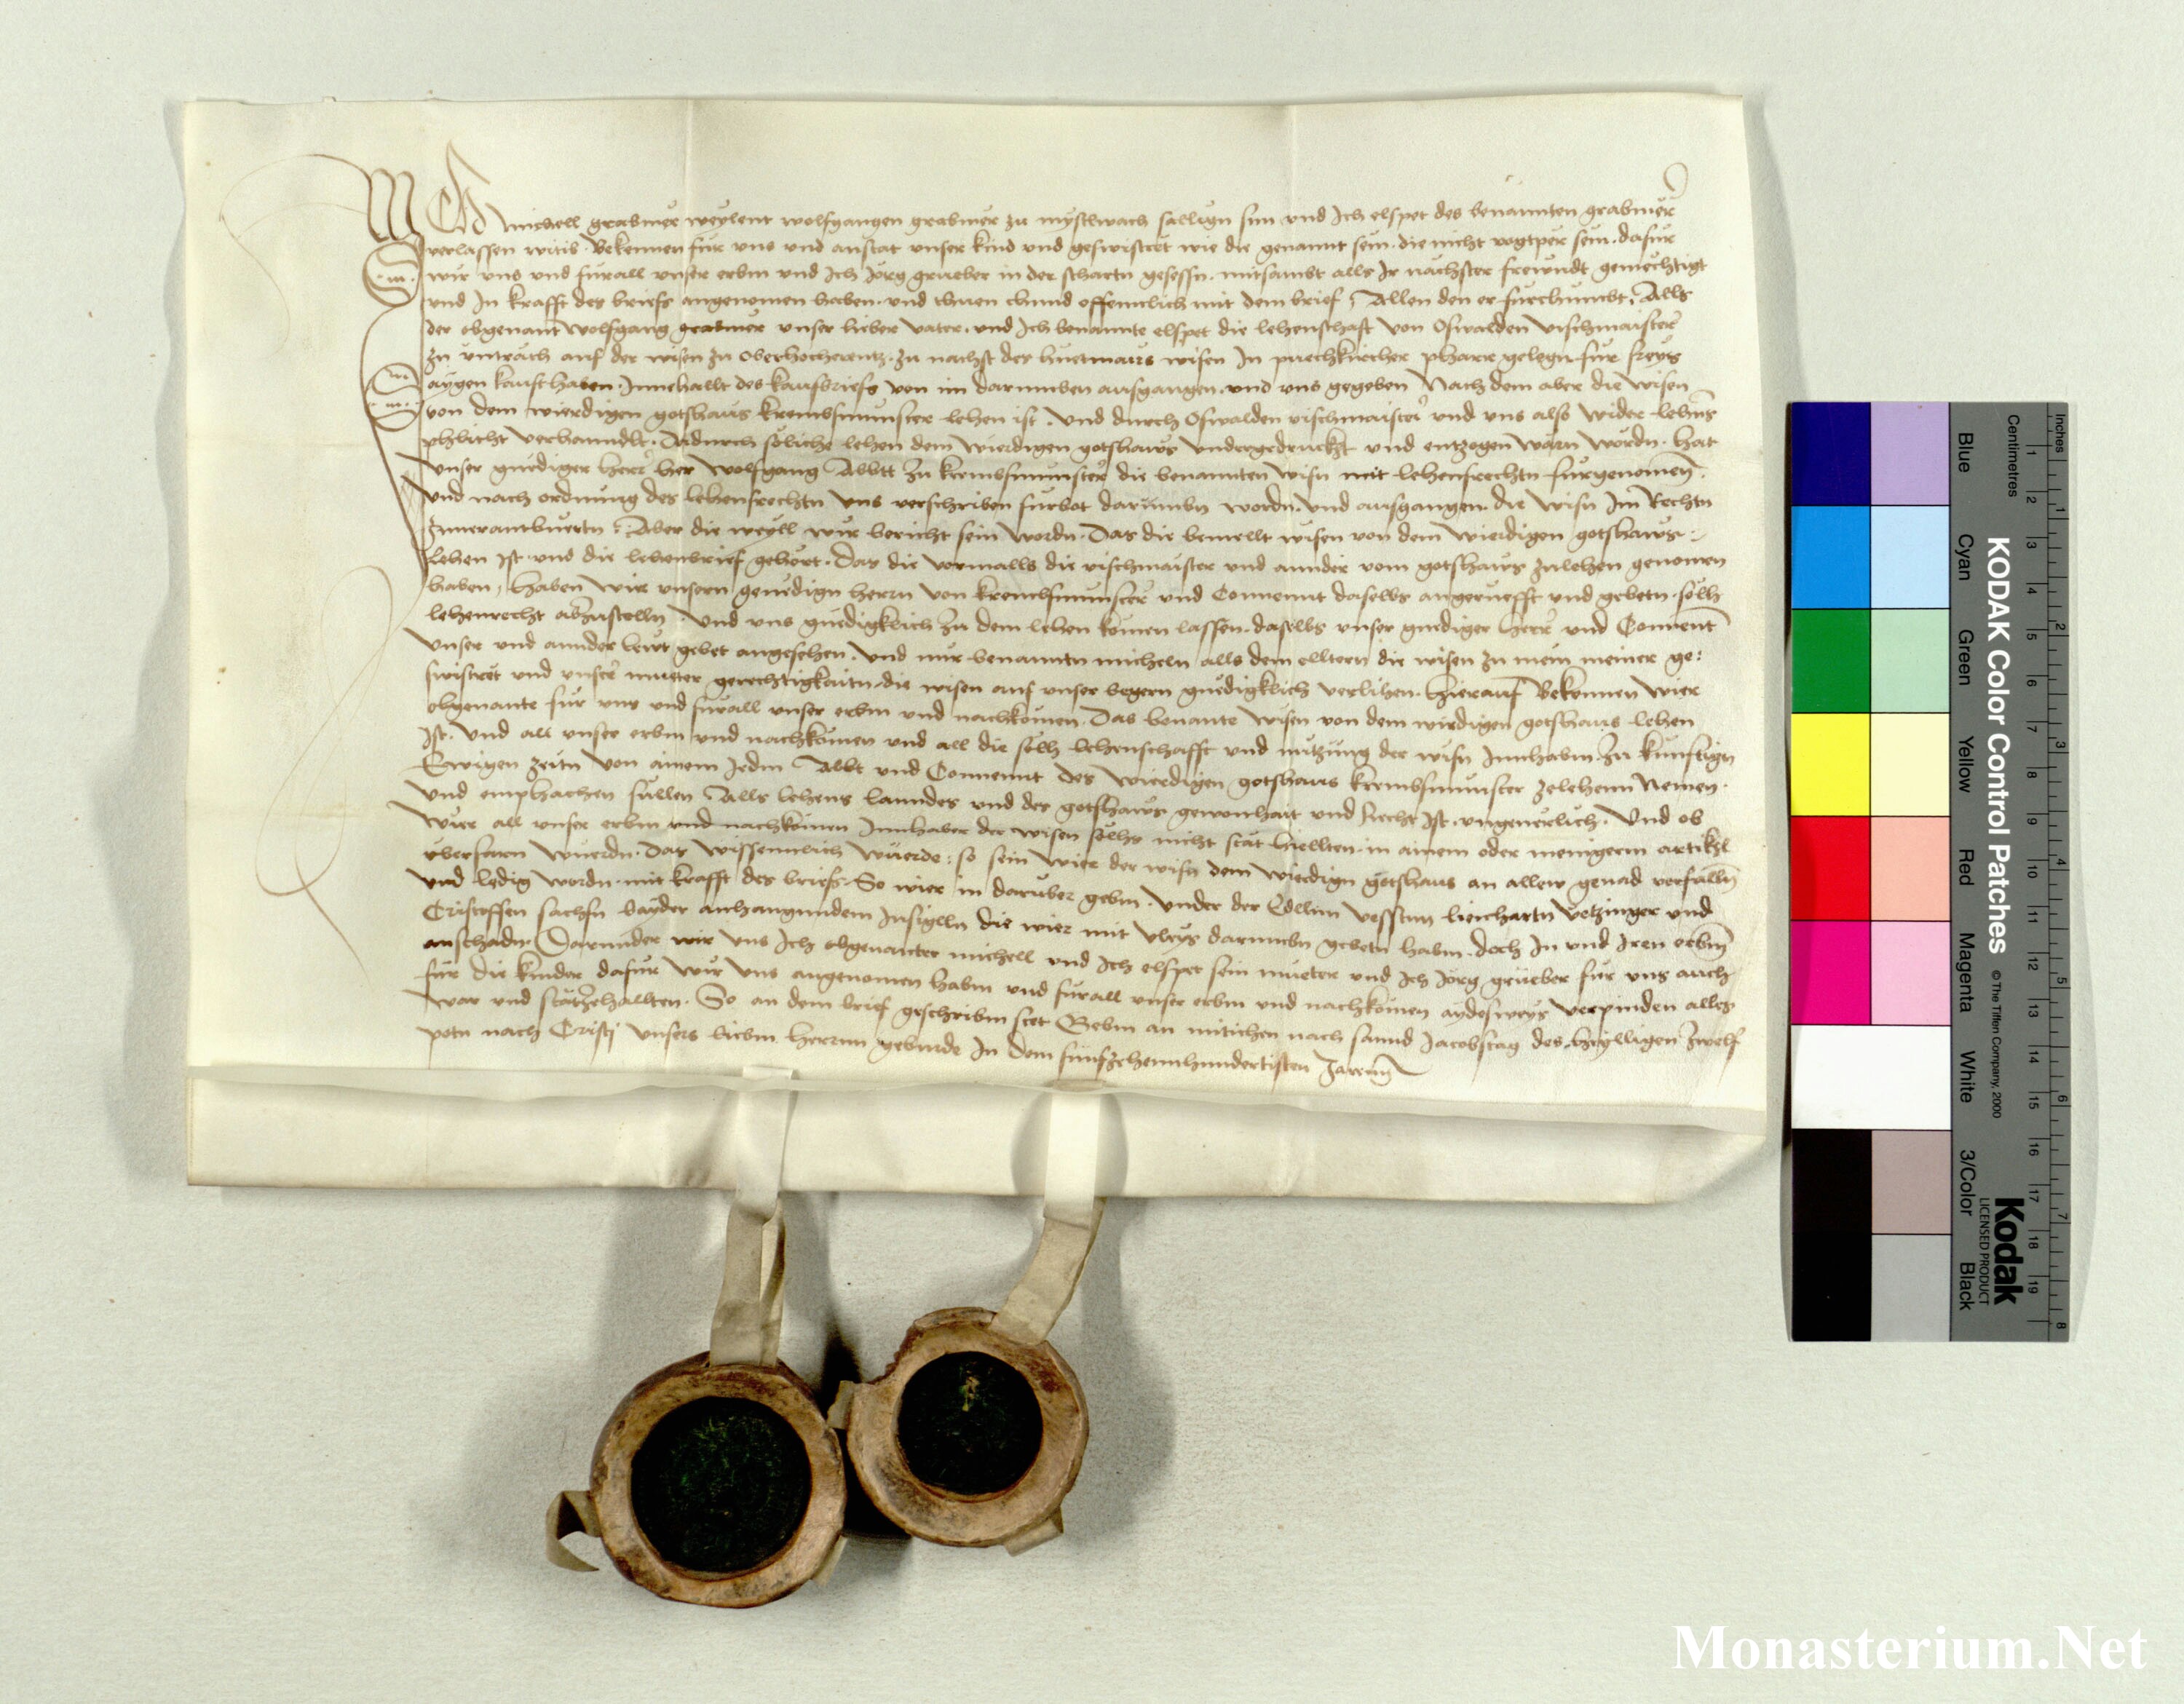 Ich michell grabmer weylent wolfgangen grabmer zu mystlwach sallign sun und Ich elspet des benannten grabmer
verlassen witib. Bekennen fur uns und anstat unser kind und geswistret wie die genannt sein. die nicht vogtper sein. dafur
wir uns und fur all unser erbm und Ich Jörg grueber in der schartn gesessn. mitsambt alls Ir nächster frewndt gemechtigt
und In krafft des briefs angenomen haben. und thuen chund offennlich mit dem brief, Allen den er furchumbt, Alls
der obgenant wolfgang grabmer unser lieber vater. und Ich benannte elspet die lehenschaft von Oswalden vischmaister
zu untrach auf der wisen zu oberhocherentz. zu nachst der huetmairs wisen In puechkircher pharr gelegn fur freys
aygen kauft haben. Innehallt des kaufbriefs von im darumben ausgangen. und uns gegeben Nach dem aber die wisen
von dem wierdigen gotshaus krembsmunster lehen ist. Und durch Oswalden vischmaister und uns also wider lehns
phlicht verhanndlt. Dadurch soliche lehen dem wierdigen gotshaws undergedruckht und entzogen wärn wordn. hat
unser gnediger herr her Wolfgang Abbtt zu krembsmunster die benannten wisn mit lehensrechtn furgenomen.
Und nach ordnung des lehensrechtn uns verschriben furbot darumbn wordn. und ausgangen. die wisn Im Rechtn
Zuverantburtn. Aber die weyll wir bericht sein wordn. Das die bemellt wisen von dem wierdigen gotshaws
Lehen ist. und die lehenbrief gehort. das die vormalls die vischmaister und annder vom gotshaws zulehen genomen
haben, haben wir unsern genedign herrn von krembsmunster und Convennt daselbs angeruefft und gebetn. solh
lehenrecht abzustelln. Und uns gnedigklich zu dem lehen komen lassen. daselbs unser gnediger herr und Convent
unser und annder lewt gebet angesehen. und mir benanntn micheln alls dem elltern die wisen zu mein meiner ge:
swistret und unser mueter gerechtigkaitn. die wisen auf unser begern gnedigklich verlihen. hierauf Bekennen wier
obgenante fur uns und fur all unser erbm und nachkomen. Das benante wisen von dem wirdigen gotshaus lehen
Ist. Und all unser erbm und nachkomen und all die solh lehenschafft und nutzung der wisn Innhabm. zu kunftign
Ewigen zeitn von ainem Jedm Abbt und Convennt des wierdigen gotshaus krembsmunster zelehenn Nemen.
Und emphachen sullen Alls lehens lanndes und des gotshaws gewonhait und Recht ist. ungeverlich. Und ob
Wier all unser erbm und nachkomen Innhaber der wisen solhs nicht stät hiellten. in ainem oder menigerm artikl
uberfarn wuerdn. Das wissenntlich wuerde: so sein wier der wisn dem wierdign gotshaus an allen genad verfalln
und ledig wordn. mit krafft des briefs. So wier in daruber gebm. Under der Edlenn vesstnn lienhartn Utzinger und
Cristoffen sachsn bayder anhangunndem Insiglln die wier mit vleys darumbn gebetn habm. doch In und Iren erbm
anschadn. Darunder wir uns Ich obgenanter michell und Ich elspet sein mueter und Ich Jörg grueber fur uns auch
fur die kinder dafur wir uns angenomen habm und fur all unser erbm und nachkomen aydesweys verpinden alles
war und stätzehallten. So an dem brief geschribm stet Gebm an mitichen nach sannd Jacobstag des heylligen zwelf
potn nach Cristj unsers liebm herrnn geburde In dem funfzehennhundertisten Jarenn
Inches
Centimetres
KODAK Color Control Patches © The Tiffen Company, 2000
Kodak
LICENSED PRODUCT
Blue
Cyan
Green
Yellow
Red
Magenta
White
3/Color
Black
Monasterium.Net